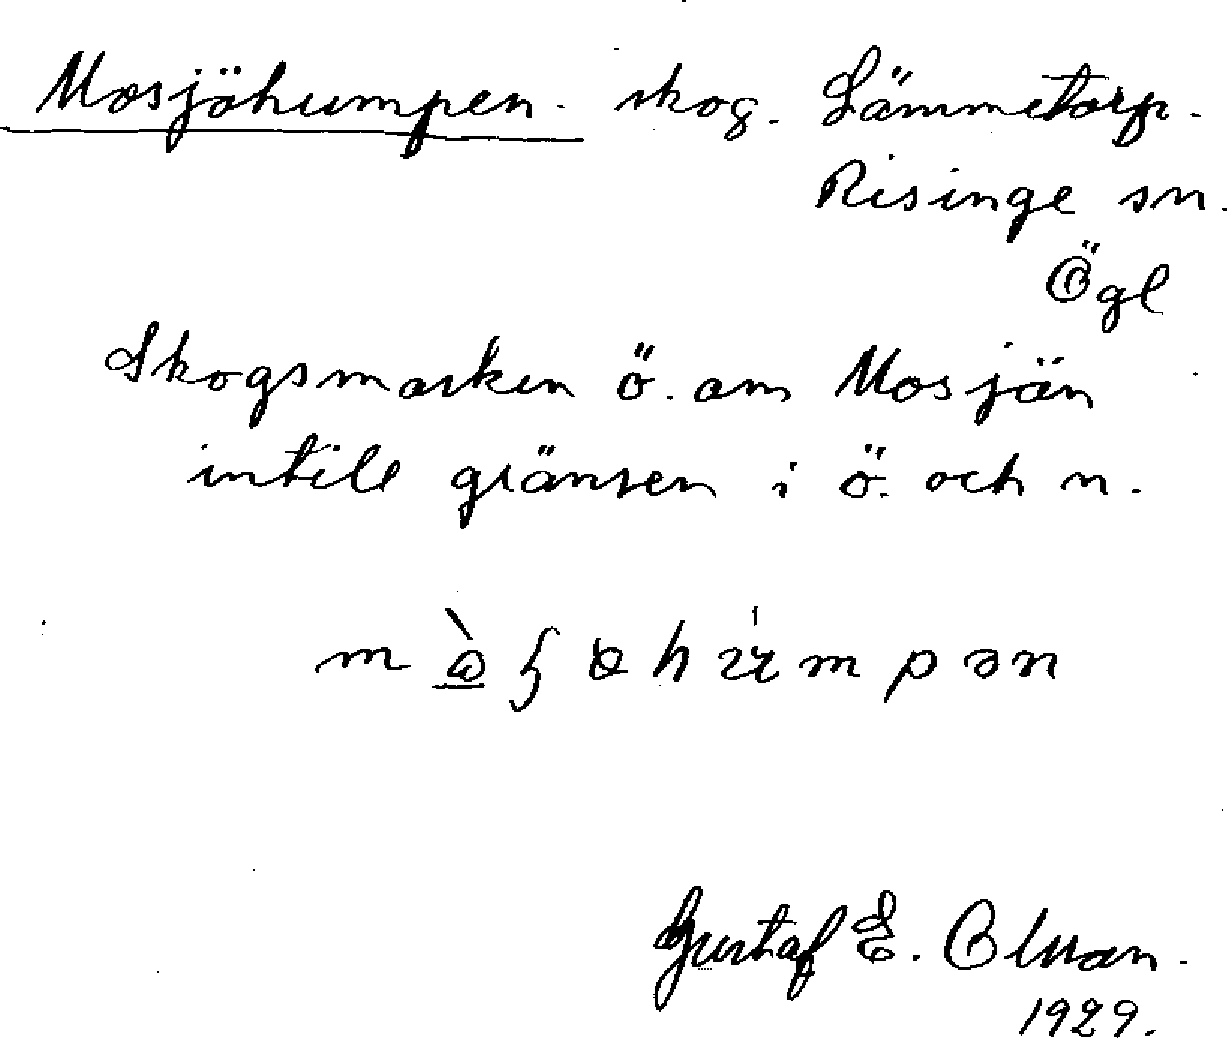 Mosjöhumpen. skog. Lämmetorp.
Risinge sn.
Ögl
Skogsmarken ö. om Mosjön
intill gränsen i ö. och n.
Gustaf E. Olsson.
1929.